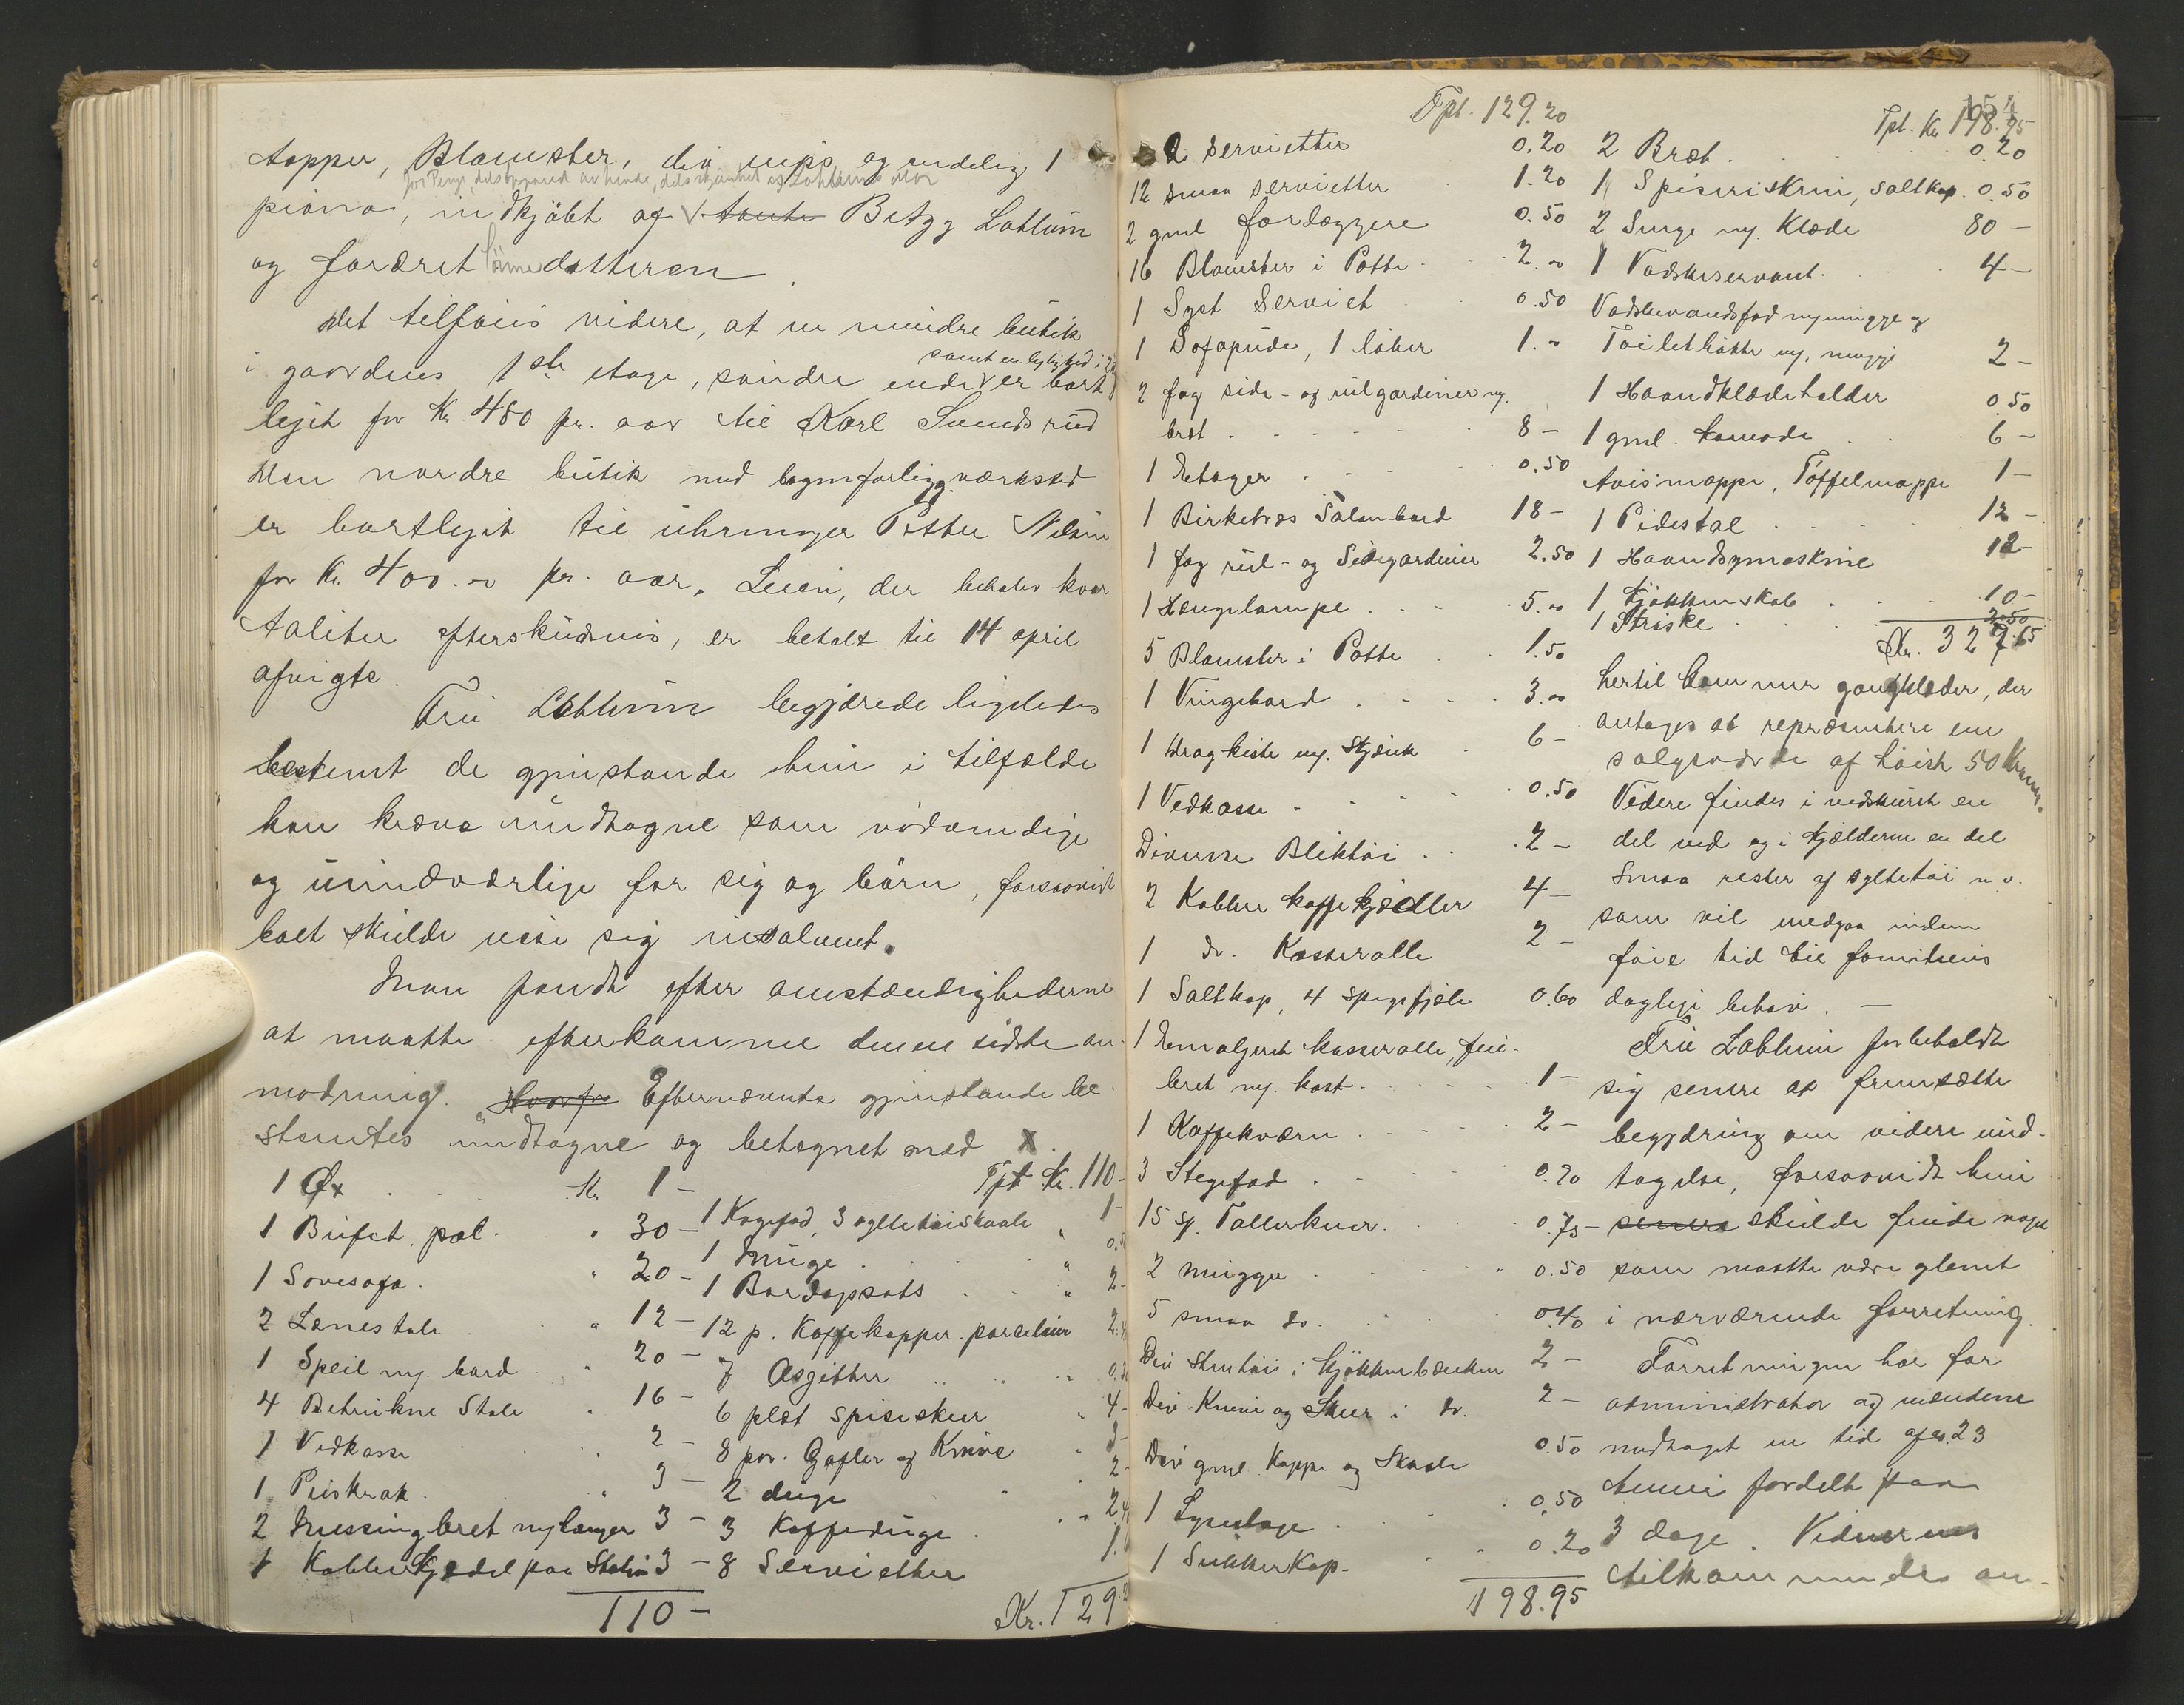 tapper, Blomster, div nips og endelig 1
for Penge, dels opsparet av hende, dels skjænket af Lohtums mor
piano, indkjøbt af tante Betzy Lohtum
og foræret sönnedatteren.
Det tilføies videre, at en mindre butik
samt en leylighed i 2den
i gaardens 1ste etage, søndre ende er bort
lejet for Kr. 480 pr. aar til Karl Sundsrud
Den nordre butik med bagenforligg. værksted
er bortlejet til uhrmager Petter Nilsen
for Kr. 400.00 pr. aar. Leien, der betales kvar
taliter efterskudsvis, er betalt til 14 april
afvigte.
Fru Lohtum begjærede ligeledes
bestemt de gjenstande hun i tilfælde
kan kræve undtagne som nødvendige
og uundværlige for sig og børn, forsaavidt
boet skulde vise sig insolvent.
Man fandt efter omstændighederne
at maatte efterkomme denne sidste an-
modning. Hvorfor Efternævnte gjenstande be-
stemtes undtagne og betegnet med X.
1 Øx Kr 1 -
1 Bufet pol. " 30 -
1 Sovesofa. " 20 -
2 Lænestole " 12 -
1 Speil og bord " 20 -
4 Betrukne Stole " 16 -
1 Vedkasse 2 -
1 Peiskrak. " 3 -
2 Messingbret og tænger 3 -
1 Kobberkjedel paa Stativ 3 -
110 -
Tpt Kr. 110 -
1 Kagefad, 3 sylletøiskaale " 1 -
1 Muge "
1 Bordopsats " 2 -
12 p. Kaffekopper porcelæn
7 Asjetter
6 plet spiseskeer " 4 -
8 par. Gafler og Knive
2 duge 2 -
3 Kaffeduge
8 Servietter
Kr. 129.2
Tpt. 129.20
2 servietter 0.20
12 smaa servietter 1.20
2 gml forlæggere 0.50
16 Blomster i Potte 2.00
1 Syet Serviet 0.50
1 Sofapude, 1 løber 1.00
2 fag side- og rulgardiner og
bret 8 -
1 Etager 0.50
1 Birketræs Salonbord 18 -
1 fag rul- og Sidegardiner 2.50
1 Hængelampe 5.00
5 Blomster i Potte 1.50
1 Vingebord 3.00
1 Dragkiste og Skjænk 6 -
1 Vedkasse 0.50
Diverse Bliktøi 2 -
2 Kobber kaffekjedler 4 -
1 do. Kasserolle 2 -
1 Saltkop, 4 spegefjæle 0.60
1 Emaljeret kasserolle, feie-
bret og kost 1 -
1 Kaffekværn 2 -
3 Stegefad 0.70
15 sp. Tallerkner 0.75
2 mugger 0.50
5 smaa do. 0.40
Div Stentøi i kjøkkenbænken 2 -
Div Knive og Skeer i do. 2 -
Div gml. Koppe og Skaale 0.50
1 Lysestage 0.50
1 Sukkerkop 0.20
198.95
Tpt. Kr 198.95
2 Bræt 0.20
1 Spiseriskrin, saltkop 0.50
2 Senge og Klæde 80 -
1 Vadskeservant 4 -
Vadskevandsfad og mugge og
Toiletbøtte og mugge 2 -
1 Haandklædeholder 0.50
1 gml. komode 6 -
Avismappe, Tøffelmappe 1 -
1 Pidestal 12 -
1 Haandsymaskine 12 -
1 kjøkkenskab 10 -
1 Striske 2.50
Kr. 329.65
hertil kommer gangklæder, der
antages at repræsentere en
salgsværdi af høist 50 Kroner.
Videre findes i vedskuret en
del ved og i kjælderen en del
smaa rester af syltetøi m. v.
som vil medgaa inden
føie tid til familiens
daglige behov. —
Fru Lohtum forbeholdt
sig senere at fremsætte
begjæring om videre und-
tagelse, forsaavidt hun
senere skulde finde noget
som maatte være glemt
i nærværende forretning.
Forretningen har for
administrator og mændene
medtaget en tid af ca. 23
timer fordelt paa
3 dage. Vidnerne
tilkommende an-